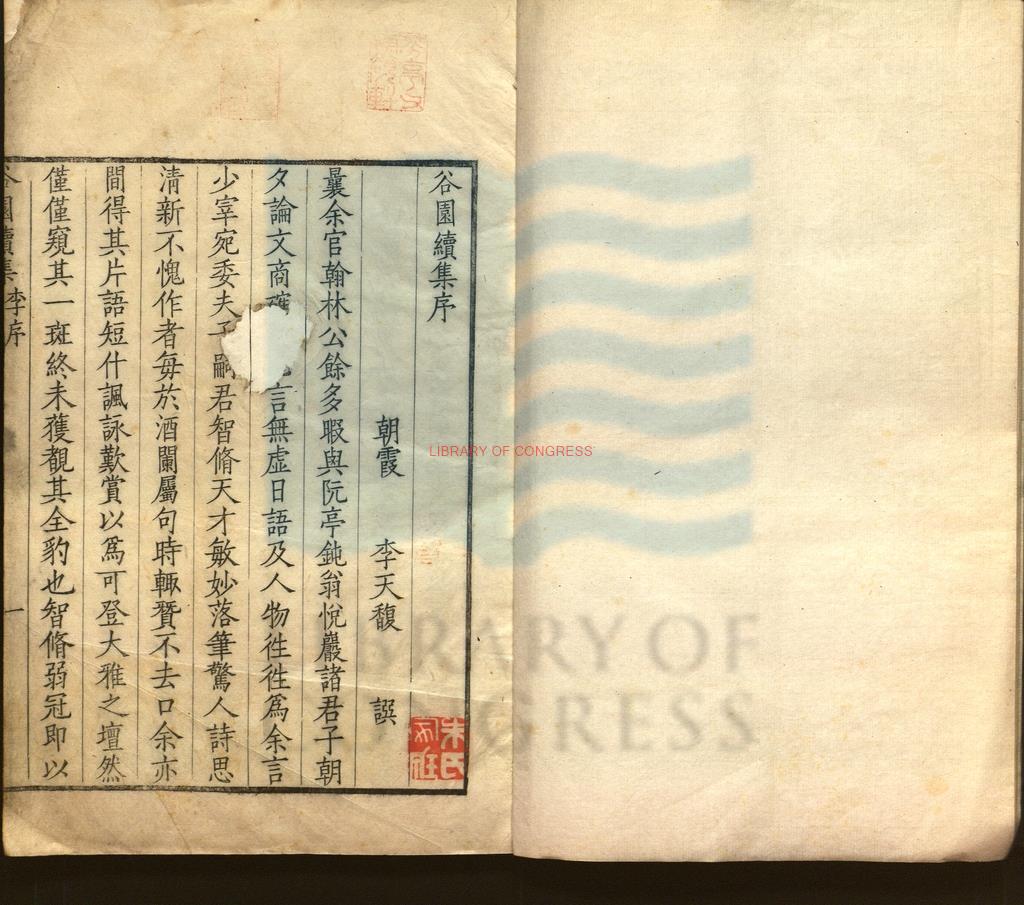 谷園續集序
朝霞 李天馥 譔
曩余官翰林公餘多暇與阮亭鈍翁悅巖諸君子朝
夕論文商 言無虛日語及人物徃徃爲余言
少宰宛委夫子嗣君智脩天才敏妙落筆驚人詩思
清新不愧作者每於酒闌屬句時輙賷不去口余亦
間得其片語短什諷詠歎賞以爲可登大雅之壇然
僅僅窺其一斑終未獲覩其全豹也智脩弱冠即以
谷園續集 李序 一
朱氏
LIBRARY OF CONGRESS
LIBRARY OF
CONGRESS